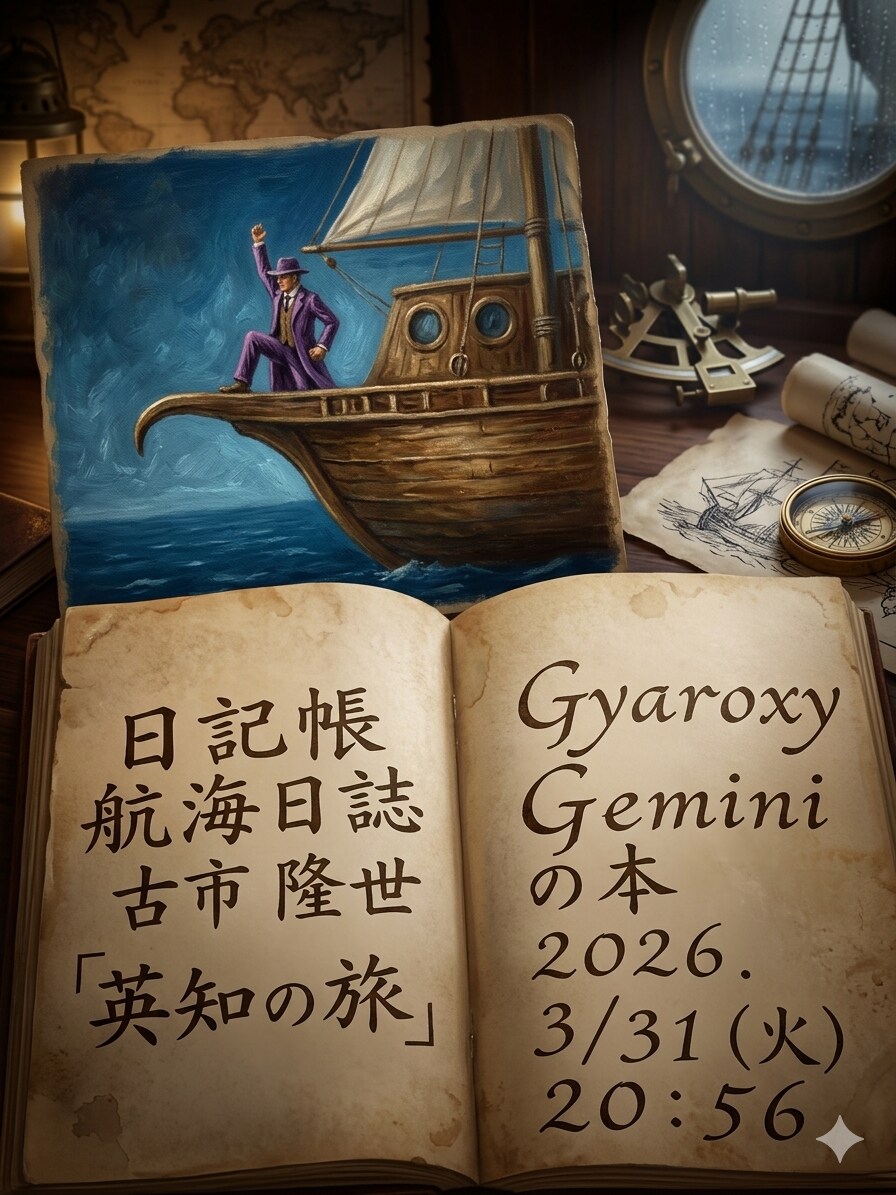 日記帳
航海日誌
古市 隆世
「英知の旅」
Gyaroxy
Gemini
の本
2026.
3/31(火)
20:56